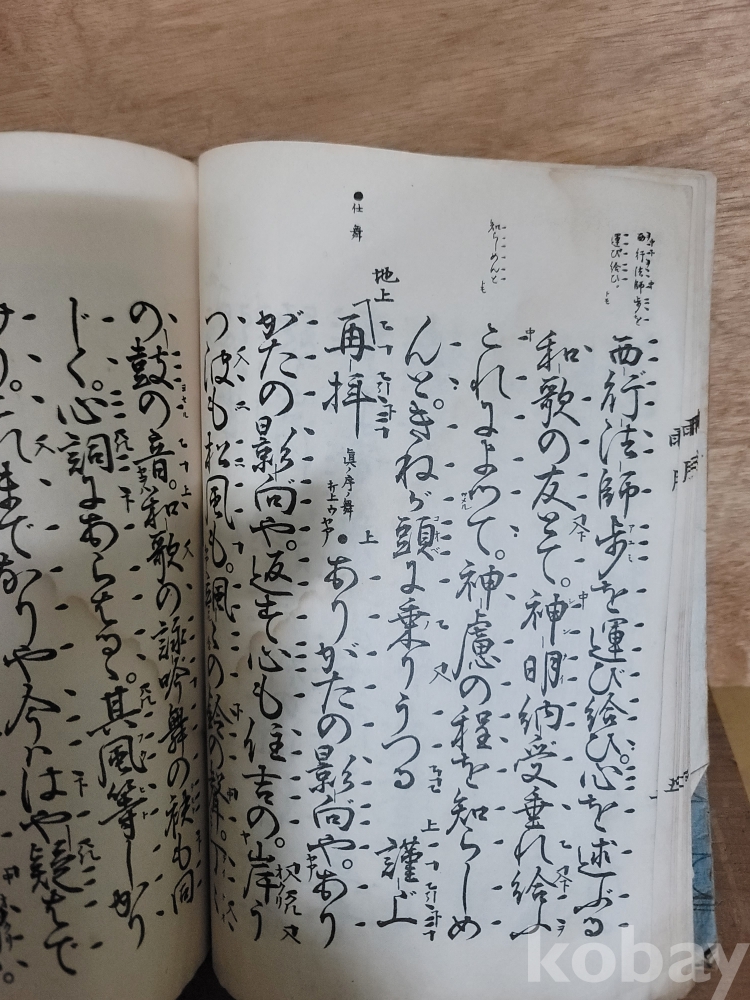 雨月
五
西行法師歩を
運び給ひ、とも
西行法師歩を運び給ひ。心を述ぶる
和歌の友とて。神明納受垂れ給ふ
知らしめんと とも
これによつて。神慮の程を知らしめ
んと。きねが頭に乗りうつる 謹上
●仕舞
地上
再拝 眞ノ序ノ舞 ありがたの影向や。あり
がたの影向や。返す心も住吉の。岸う
つ波も松風も。颯々の鈴の聲。
の鼓の音。和歌の詠吟舞の袂も同
じく。心詞にあらはるゝ。其風等しかり
けり。これまでなりや今ははや疑はで
kobay